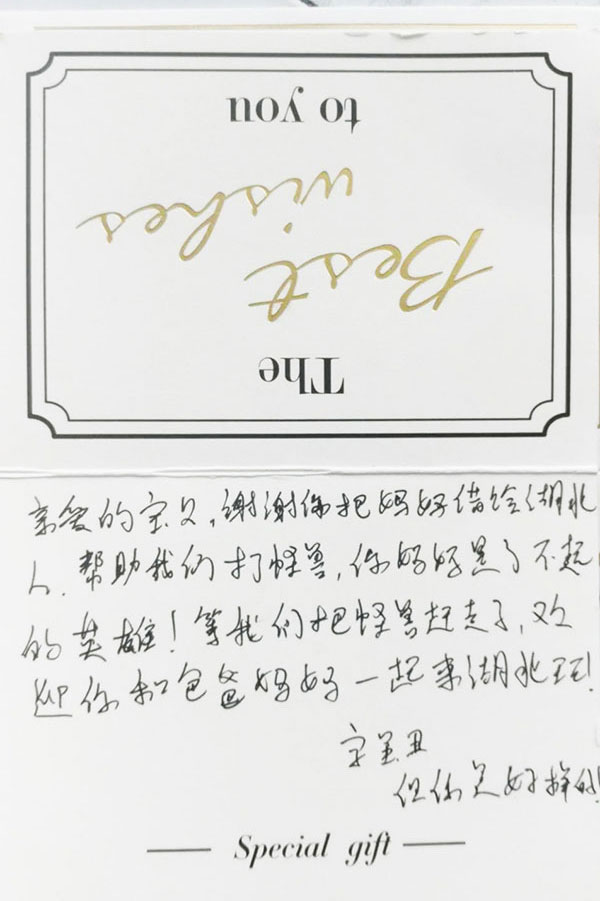 The
Best
wishes
to you
亲爱的宝贝,谢谢你把妈妈借给湖北
人,帮助我们打怪兽,你妈妈是了不起
的英雄!等我们把怪兽赶走了,欢
迎你和爸爸妈妈一起来湖北玩!
字虽丑
但你是好样的!
Special gift